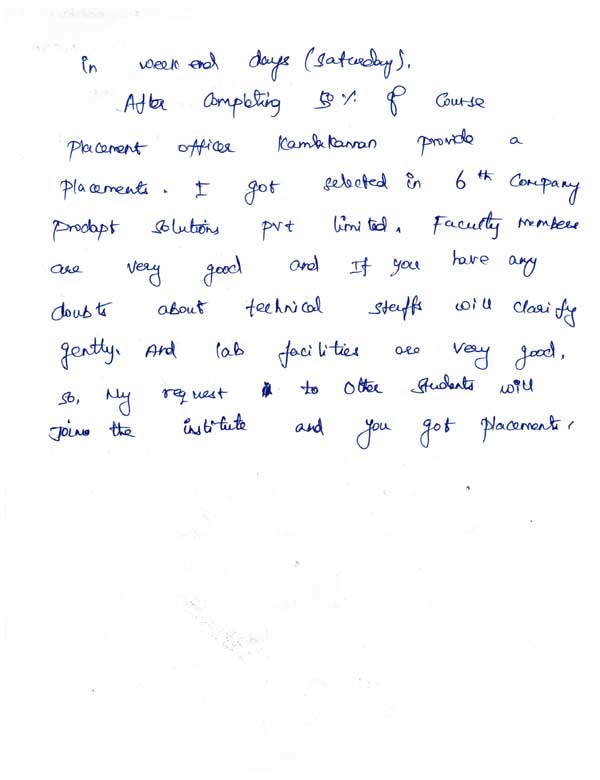 in week end days (Saturday).
After Completing 50 % of Course
Placement officer provide a
Placements. I got selected in 6 th Company
Prodapt Solutions pvt limited. Faculty members
are very good and If you have any
doubts about technical staffs will clarify
gently. And lab facilities are very good.
So, My request to Other Students will
Join the institute and you got placements.